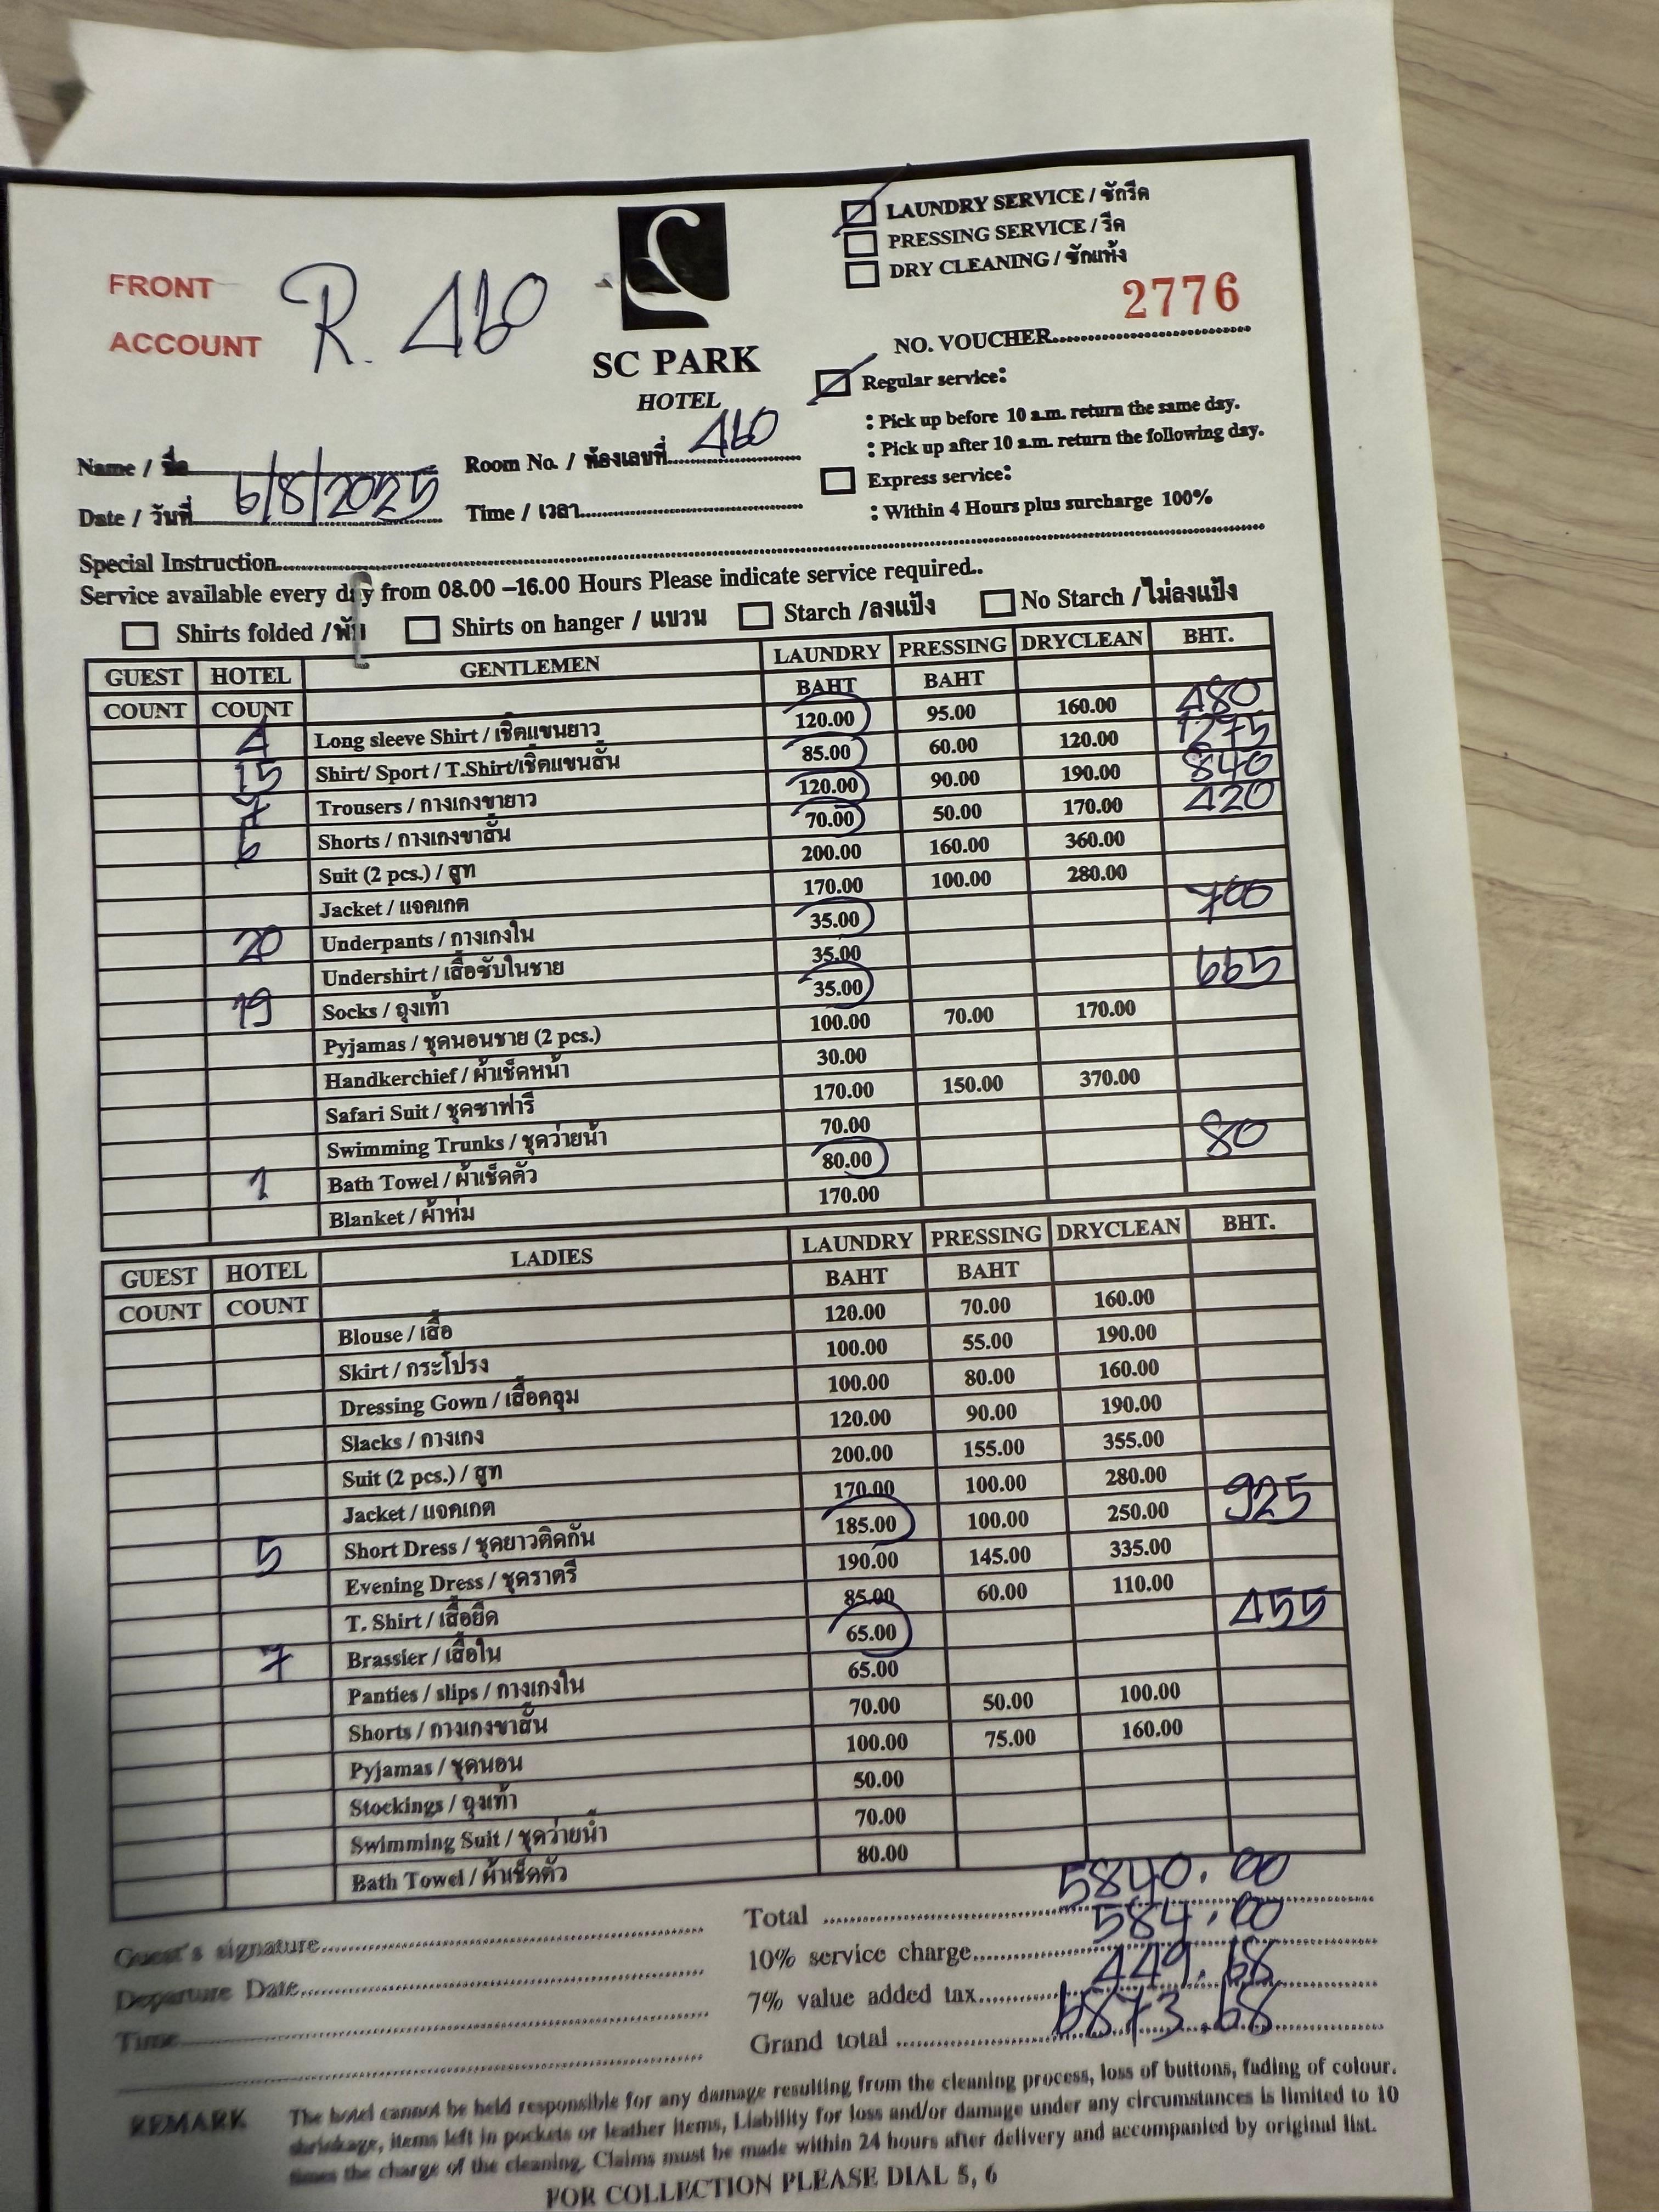 ☑ LAUNDRY SERVICE / ซักรีด
☐ PRESSING SERVICE / รีด
☐ DRY CLEANING / ซักแห้ง
FRONT
ACCOUNT
R. 460
SC PARK
HOTEL
2776
NO. VOUCHER
☑ Regular service:
: Pick up before 10 a.m. return the same day.
: Pick up after 10 a.m. return the following day.
☐ Express service:
: Within 4 Hours plus surcharge 100%
Name / ชื่อ
Room No. / ห้องเลขที่ 460
Date / วันที่ 6/8/2025
Time / เวลา
Special Instruction
Service available every day from 08.00 –16.00 Hours Please indicate service required..
☐ Shirts folded / พับ ☐ Shirts on hanger / แขวน ☐ Starch /ลงแป้ง ☐ No Starch /ไม่ลงแป้ง
GUEST COUNT HOTEL COUNT GENTLEMEN LAUNDRY BAHT PRESSING BAHT DRYCLEAN BHT.
4 Long sleeve Shirt / เชิ้ตแขนยาว 120.00 95.00 160.00 480
15 Shirt/ Sport / T.Shirt/เชิ้ตแขนสั้น 85.00 60.00 120.00 1275
7 Trousers / กางเกงขายาว 120.00 90.00 190.00 840
6 Shorts / กางเกงขาสั้น 70.00 50.00 170.00 420
Suit (2 pcs.) / สูท 200.00 160.00 360.00
Jacket / แจคเกต 170.00 100.00 280.00
20 Underpants / กางเกงใน 35.00 700
Undershirt / เสื้อซับในชาย 35.00
19 Socks / ถุงเท้า 35.00 665
Pyjamas / ชุดนอนชาย (2 pcs.) 100.00 70.00 170.00
Handkerchief / ผ้าเช็ดหน้า 30.00
Safari Suit / ชุดซาฟารี 170.00 150.00 370.00
Swimming Trunks / ชุดว่ายน้ำ 70.00
1 Bath Towel / ผ้าเช็ดตัว 80.00 80
Blanket / ผ้าห่ม 170.00
GUEST COUNT HOTEL COUNT LADIES LAUNDRY BAHT PRESSING BAHT DRYCLEAN BHT.
Blouse / เสื้อ 120.00 70.00 160.00
Skirt / กระโปรง 100.00 55.00 190.00
Dressing Gown / เสื้อคลุม 100.00 80.00 160.00
Slacks / กางเกง 120.00 90.00 190.00
Suit (2 pcs.) / สูท 200.00 155.00 355.00
Jacket / แจคเกต 170.00 100.00 280.00
5 Short Dress / ชุดยาวติดกัน 185.00 100.00 250.00 925
Evening Dress / ชุดราตรี 190.00 145.00 335.00
T. Shirt / เสื้อยืด 85.00 60.00 110.00
7 Brassier / เสื้อใน 65.00 455
Panties / slips / กางเกงใน 65.00
Shorts / กางเกงขาสั้น 70.00 50.00 100.00
Pyjamas / ชุดนอน 100.00 75.00 160.00
Stockings / ถุงเท้า 50.00
Swimming Suit / ชุดว่ายน้ำ 70.00
Bath Towel / ผ้าเช็ดตัว 80.00
Total 5840.00
Guest's signature
10% service charge 584.00
Departure Date
7% value added tax 449.68
Time
Grand total 6873.68
REMARK The hotel cannot be held responsible for any damage resulting from the cleaning process, loss of buttons, fading of colour.
shrinkage, items left in pockets or leather items, Liability for loss and/or damage under any circumstances is limited to 10
times the charge of the cleaning. Claims must be made within 24 hours after delivery and accompanied by original list.
FOR COLLECTION PLEASE DIAL 5, 6